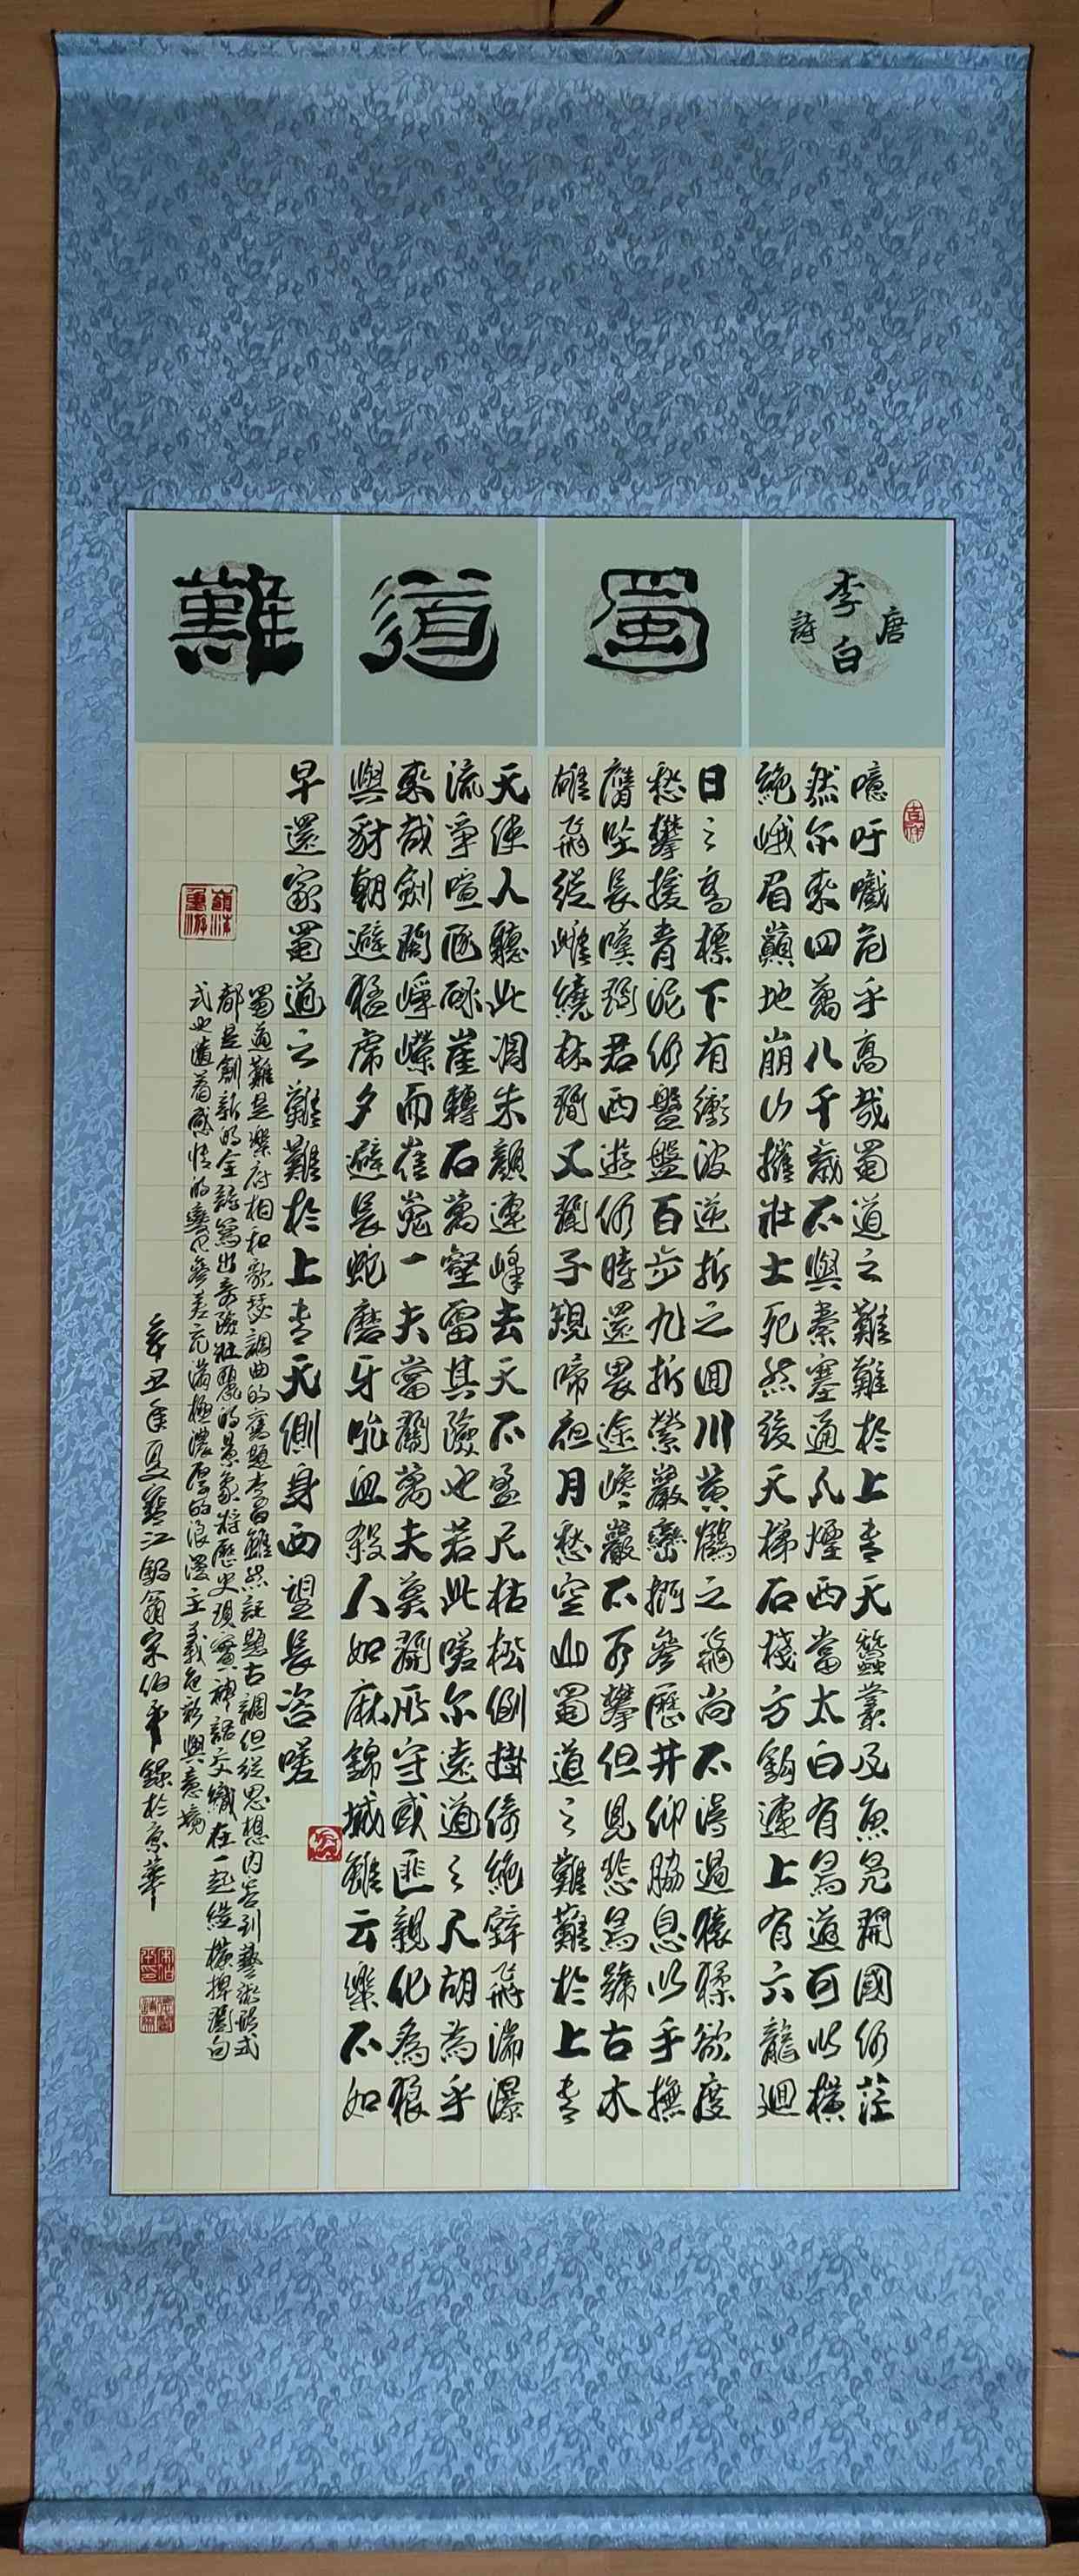 唐
李白
詩
蜀道難
吉祥
噫吁嚱危乎高哉蜀道之難難於上青天蠶叢及魚鳧開國何茫
然尔來四萬八千歲不與秦塞通人煙西當太白有鳥道可以橫
絶峨眉巔地崩山摧壯士死然後天梯石棧方鈎連上有六龍迴
日之高標下有衝波逆折之回川黃鶴之飛尚不得過猿猱欲度
愁攀援青泥何盤盤百步九折縈巖巒捫參歷井仰脇息以手撫
膺坐長嘆問君西遊何時還畏途巉巖不可攀但見悲鳥號古木
雄飛從雌繞林間又聞子規啼夜月愁空山蜀道之難難於上青
天使人聽此凋朱顏連峰去天不盈尺枯松倒掛倚絶壁飛湍瀑
流爭喧豗砯崖轉石萬壑雷其險也若此嗟尔遠道之人胡為乎
來哉劍閣崢嶸而崔嵬一夫當關萬夫莫開所守或匪親化為狼
與豺朝避猛虎夕避長蛇磨牙吮血殺人如麻錦城雖云樂不如
早還家蜀道之難難於上青天側身西望長咨嗟
蜀道難是樂府相和歌瑟調曲的舊題李白雖然託題古調但從思想内容到藝術形式
都是創新的全詩寫出奇險壯麗的景象將歷史現實神話交織在一起縱橫捭闔句
式也隨着感情的變化參差充滿極濃厚的浪漫主義色彩與意境
辛丑年夏江翁宋伯平錄於京華